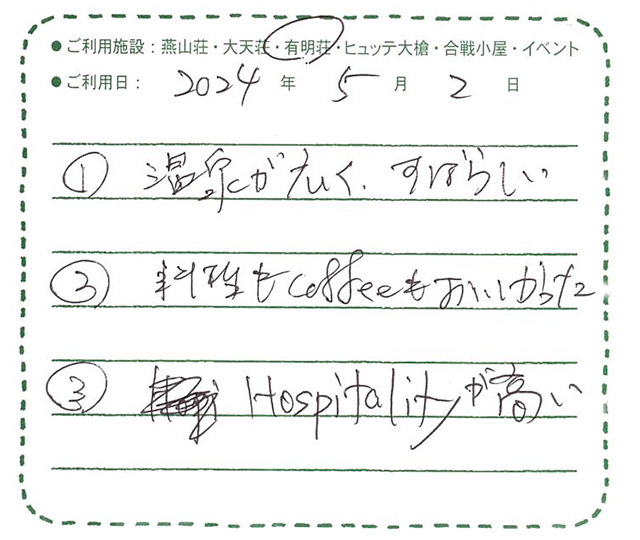 ●ご利用施設：燕山荘・大天荘・有明荘・ヒュッテ大槍・合戦小屋・イベント
●ご利用日： 2024 年 5 月 2 日
① 温泉が広く、すばらしい
② 料理もcoffeeもおいしかった
③ Hospitalityが高い